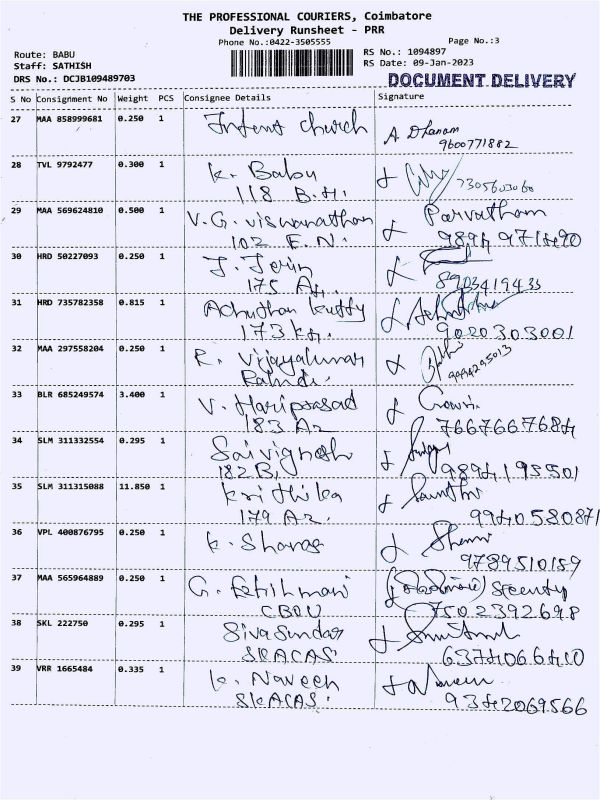 THE PROFESSIONAL COURIERS, Coimbatore
Delivery Runsheet - PRR
Phone No.:0422-3505555
Page No.:3
Route: BABU
Staff: SATHISH
DRS No.: DCJB109489703
RS No.: 1094897
RS Date: 09-Jan-2023
DOCUMENT DELIVERY
S No Consignment No Weight PCS Consignee Details Signature
27 MAA 858999681 0.250 1 Infant church A Dhanam
9600771882
28 TVL 9792477 0.300 1 K. Babu
118 B.H. 7305603060
29 MAA 569624810 0.500 1 V.G. viswanathan Parvatham
102 E.N.
30 HRD 50227093 0.250 1 J. Jerin
175 8903419433
31 HRD 735782358 0.815 1 Achuthan kutty
173 9020303001
32 MAA 297558204 0.250 1 R. Vijayakumar
33 BLR 685249574 3.400 1 V. Hariprasad Gowri
183 Az 7667667684
34 SLM 311332554 0.295 1 Saivignesh
182 B, 9894195501
35 SLM 311315088 11.850 1 krithika
179 Az. 9940580871
36 VPL 400876795 0.250 1 K. Sharas
9789510159
37 MAA 565964889 0.250 1 G. security
7502392698
38 SKL 222750 0.295 1 Sivasundar
SKACAS 6374066410
39 VRR 1665484 0.335 1 K. Naveen Naveen
SKACAS. 9342069566